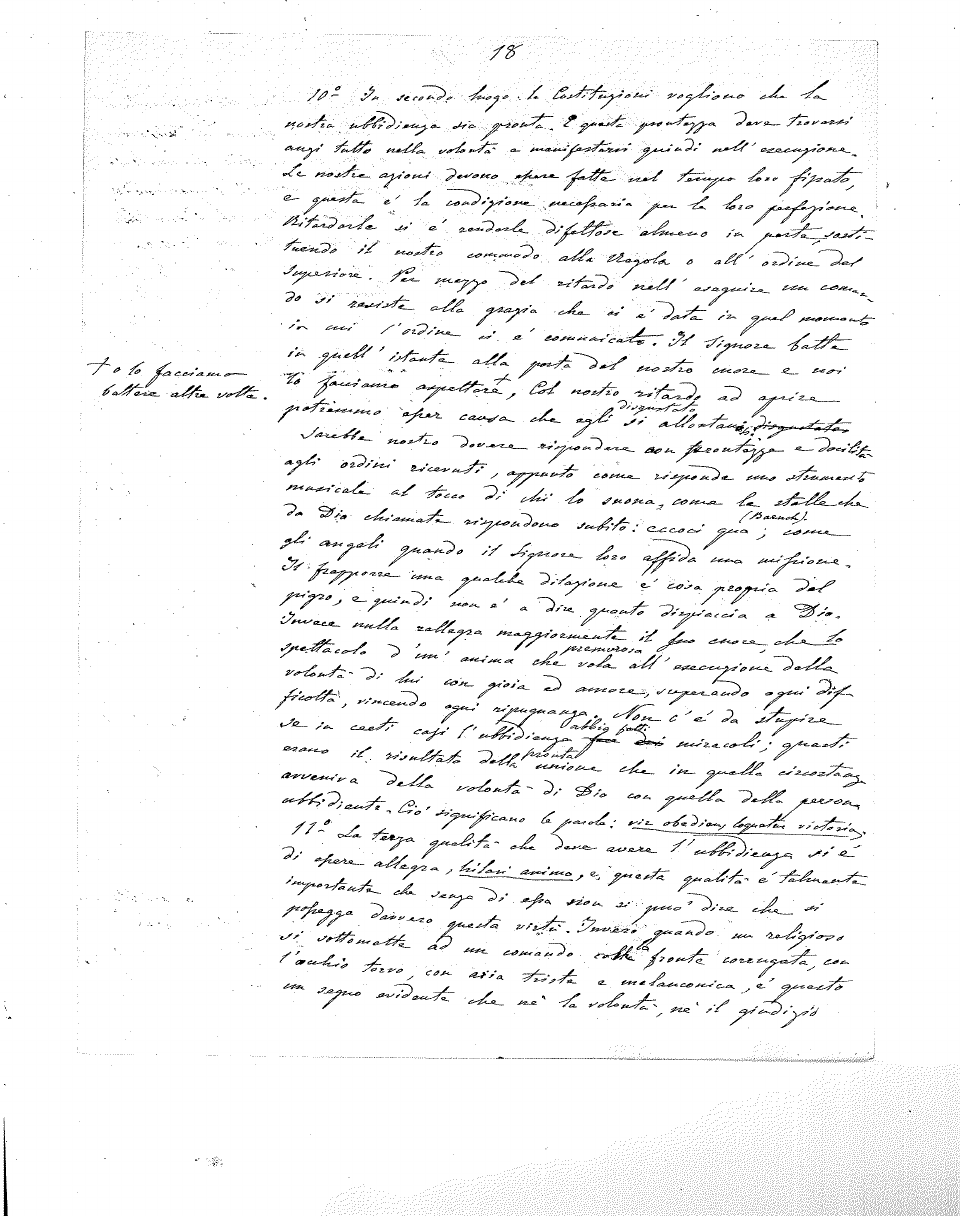 18
10º In secondo luogo le Costituzioni vogliono che la
nostra ubbidienza sia pronta. E questa prontezza deve trovarsi
anzi tutto nella volontà e manifestarsi quindi nell' esecuzione.
Le nostre azioni devono essere fatte nel tempo loro fissato,
e questa è la condizione necessaria per la loro perfezione.
Ritardarle si è renderle difettose almeno in parte, sosti-
tuendo il nostro commodo alla Regola o all' ordine del
Superiore. Per mezzo del ritardo nell' eseguire un coman-
do si resiste alla grazia che ci è data in quel momento
in cui l'ordine ci è comunicato. Il Signore batte
in quell' istante alla porta del nostro cuore e noi
lo facciamo aspettare†, Col nostro ritardo ad aprire
† o lo facciamo
battere altre volte.
potremmo esser causa che egli si allontani disgustato
disgustato
Sarebbe nostro dovere rispondere con prontezza e docilità
agli ordini ricevuti, appunto come risponde uno strumento
musicale al tocco di chi lo suona, come le stelle che
da Dio chiamate rispondono subito: eccoci qua; come
(Baruch).
gli angeli quando il Signore loro affida una missione.
Il frapporre una qualche dilazione è cosa propria del
pigro, e quindi non è a dire quanto dispiaccia a Dio.
Invece nulla rallegra maggiormente il suo cuore, che lo
spettacolo d'un' anima che vola all' esecuzione della
premurosa
volontà di lui con gioia ed amore, superando ogni dif-
ficoltà, vincendo ogni ripugnanza. Non c'è da stupire
se in certi casi l'ubbidienza miracoli; questi
abbia fatti
erano il risultato della unione che in quella circostanza
pronta
avveniva della volontà di Dio con quella della persona
ubbidiente. Ciò significano le parole: vir obediens loquetur victoriam.
11º La terza qualità che deve avere l'ubbidienza si è
di essere allegra, hilari animo, e, questa qualità è talmente
importante che senza di essa non si può dire che si
possegga davvero questa virtù. Invero quando un religioso
si sottomette ad un comando colla fronte corrugata, con
l'occhio torvo, con aria triste e melanconica, è questo
un segno evidente che nè la volontà, nè il giudizio